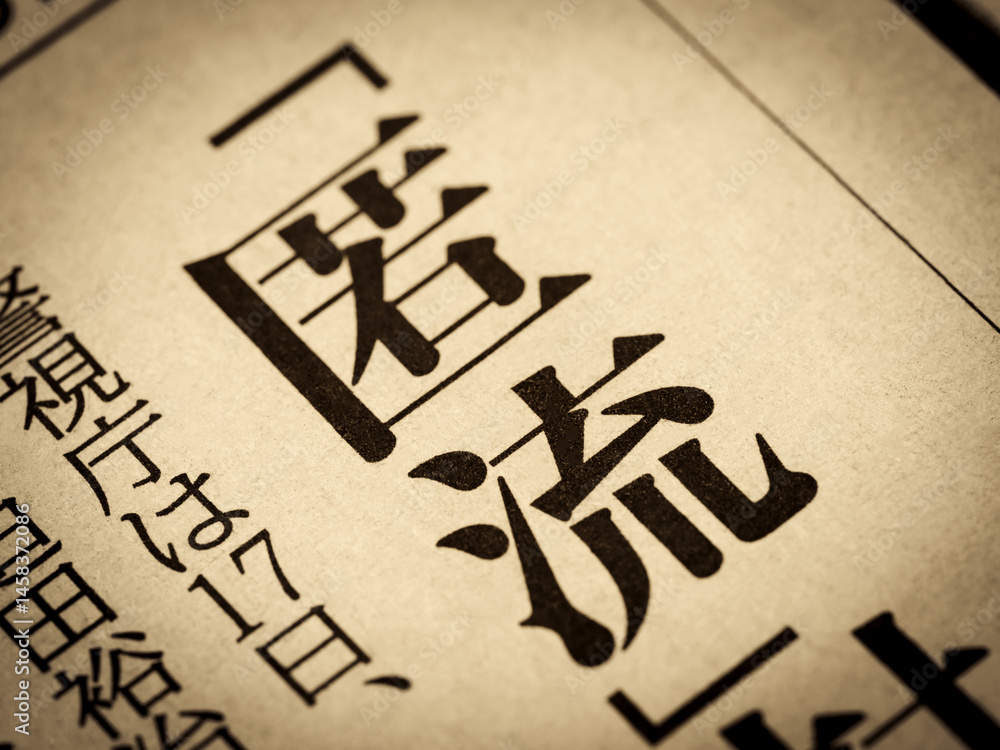 「匿流」
警視庁は17日、
田裕
Adobe Stock | #1458372086
Adobe Stock